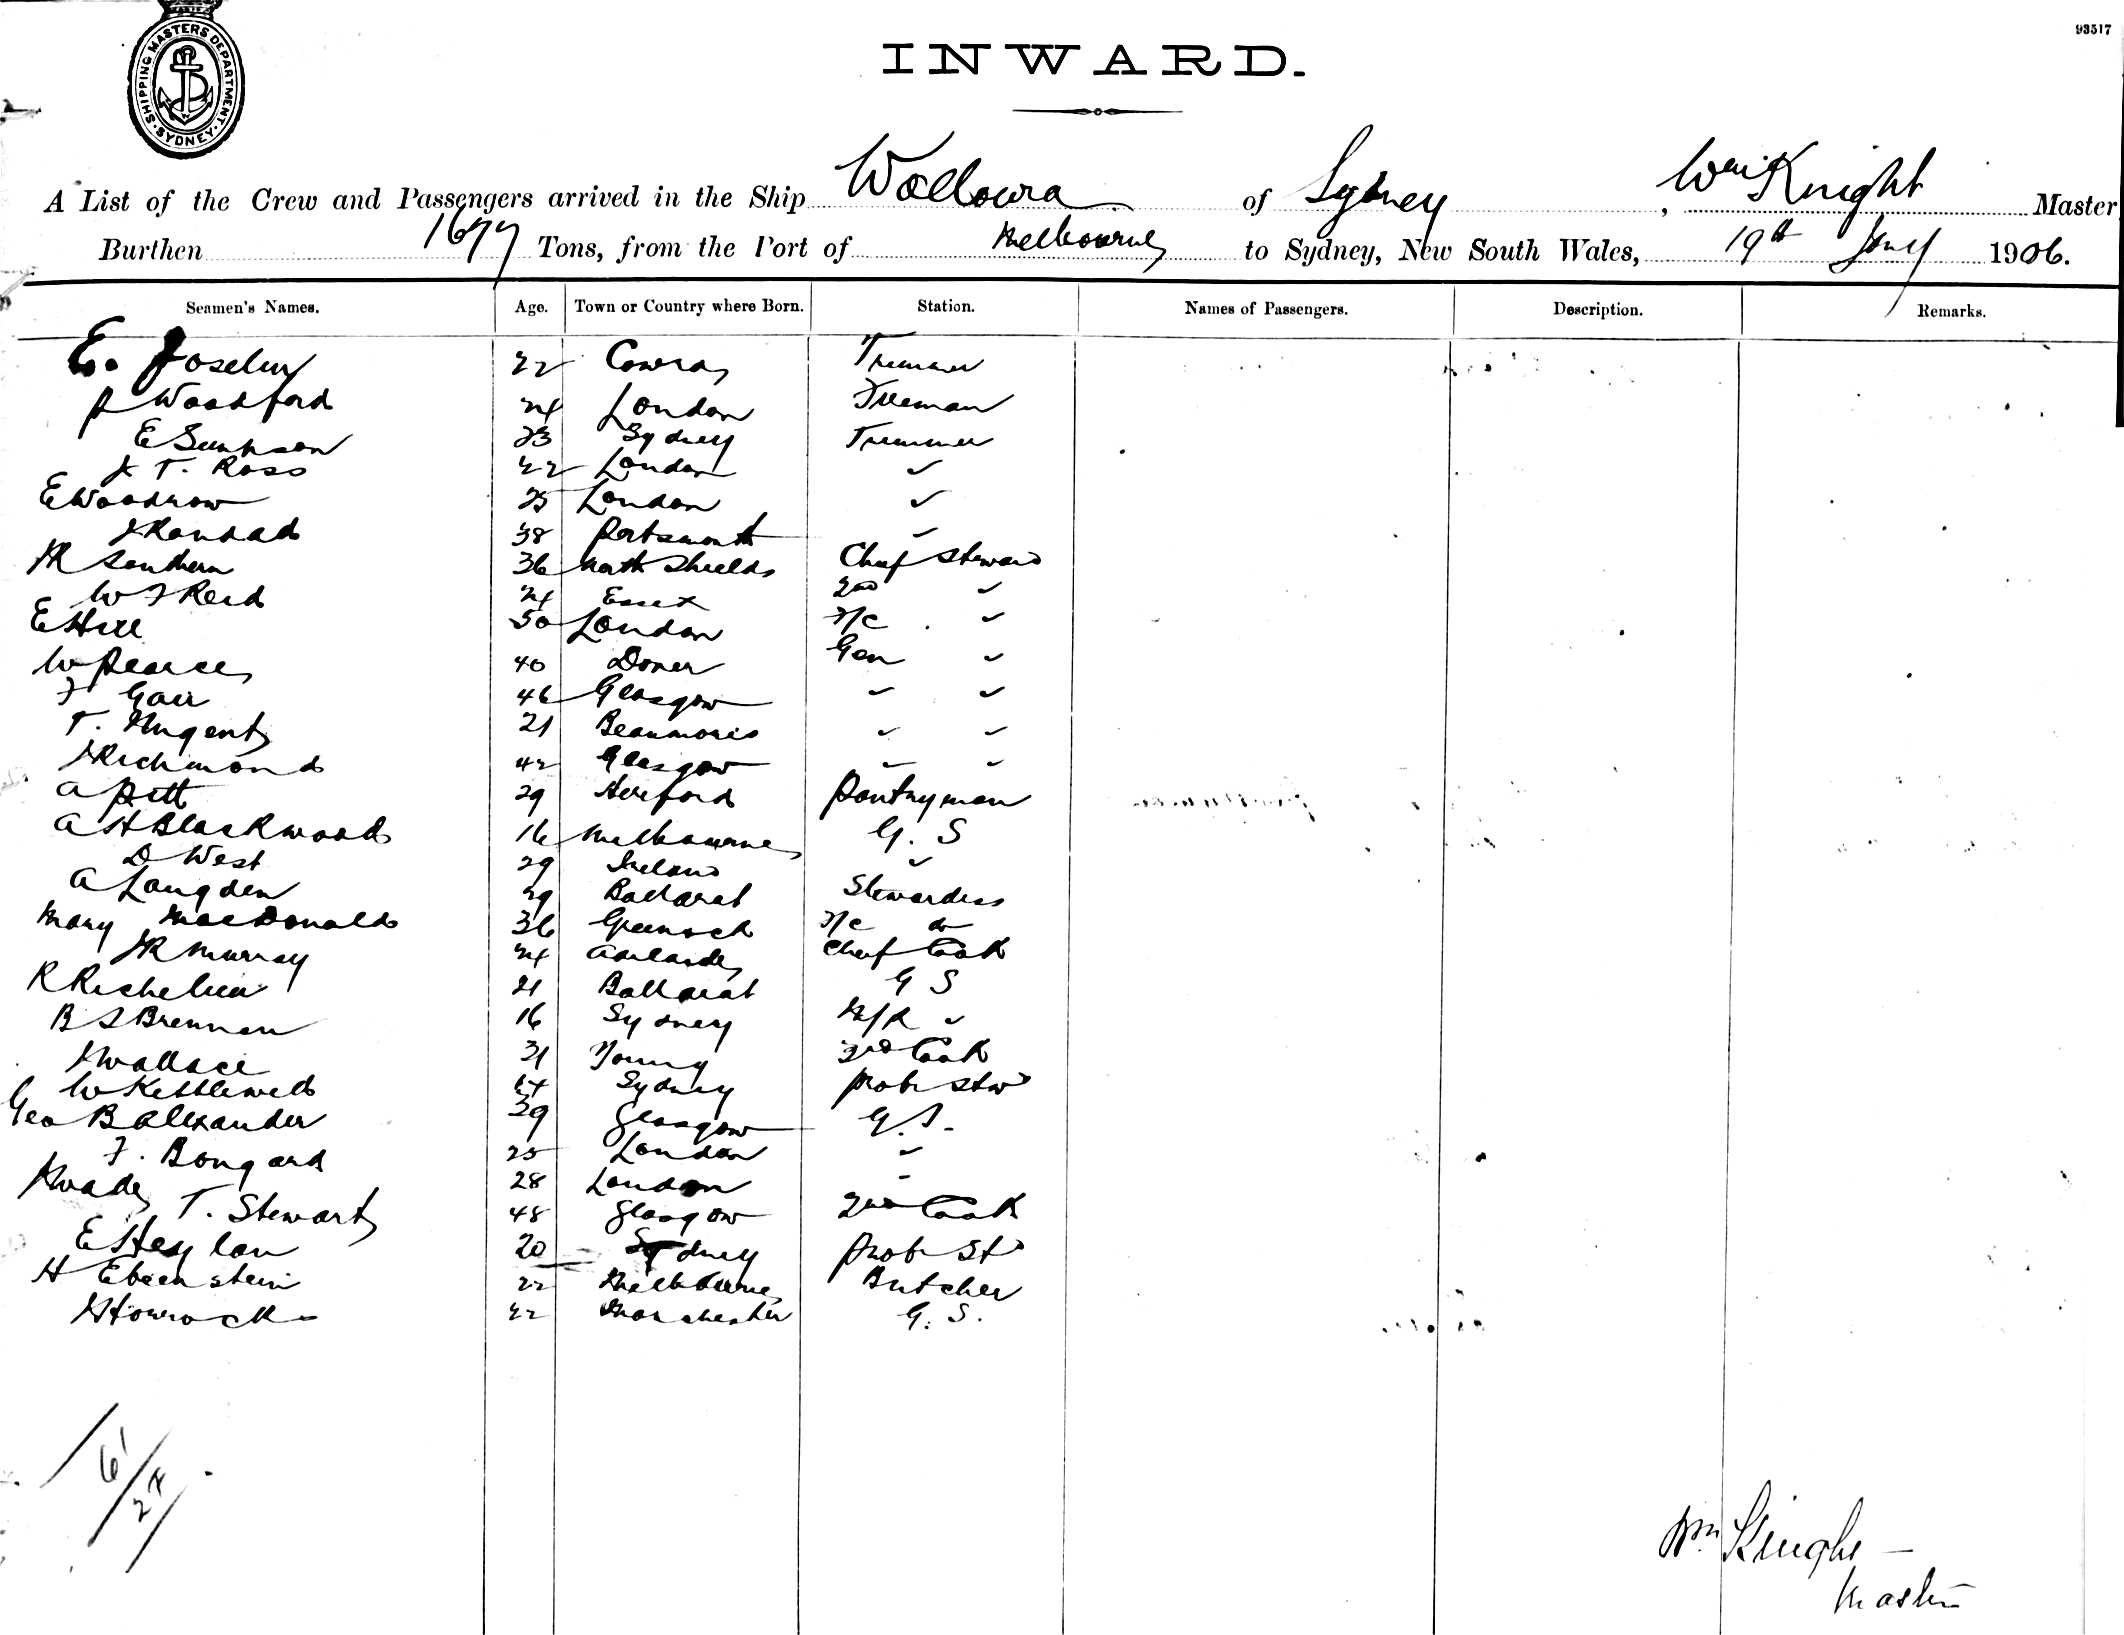 93517
SHIPPING MASTERS DEPARTMENT SYDNEY
INWARD.
A List of the Crew and Passengers arrived in the Ship Wollowra of Sydney, Wm Knight Master
Burthen 1677 Tons, from the Port of Melbourne to Sydney, New South Wales, 19th Jany 1906.
Seamen's Names. Age. Town or Country where Born. Station. Names of Passengers. Description. Remarks.
E. Joselin 22 Cowra Trimmer
P Woodford 24 London Fireman
E Simpson 23 Sydney Trimmer
J T. Ross 22 London ✓
E Woodrow 25 London ✓
38 Portsmouth ✓
Southern 36 North Shields Chief Steward
W F Reid 24 Essex 2nd ✓
E Hill 50 London F/C ✓
W Pearce 40 Dover Gen ✓
F Gair 46 Glasgow ✓ ✓
T. Nugent 21 Beaumoris ✓ ✓
J Richmond 42 Glasgow ✓ ✓
A Pitt 29 Hereford Pantryman
A H Blackwood 16 Melbourne G. S
D West 29 Ireland ✓
A Langden 29 Ballarat Stewardess
Mary MacDonald 36 Greenock F/C do
J R Murray 24 Adelaide Chief Cook
R Richelieu 21 Ballarat G S
B S Brennan 16 Sydney M/R ✓
J Wallace 31 Young 3rd Cook
W Kettlewell 24 Sydney Prob Stwd
Geo B Alexander 39 Glasgow G. S.
F. Bongard 25 London ✓
J Wade 28 London ✓
T. Stewart 48 Glasgow 2nd Cook
E Heylan 20 Sydney Prob St
H Ebenstein 22 Melbourne Butcher
J Horrocks 22 Manchester G. S.
6/24
Wm Knight
Master